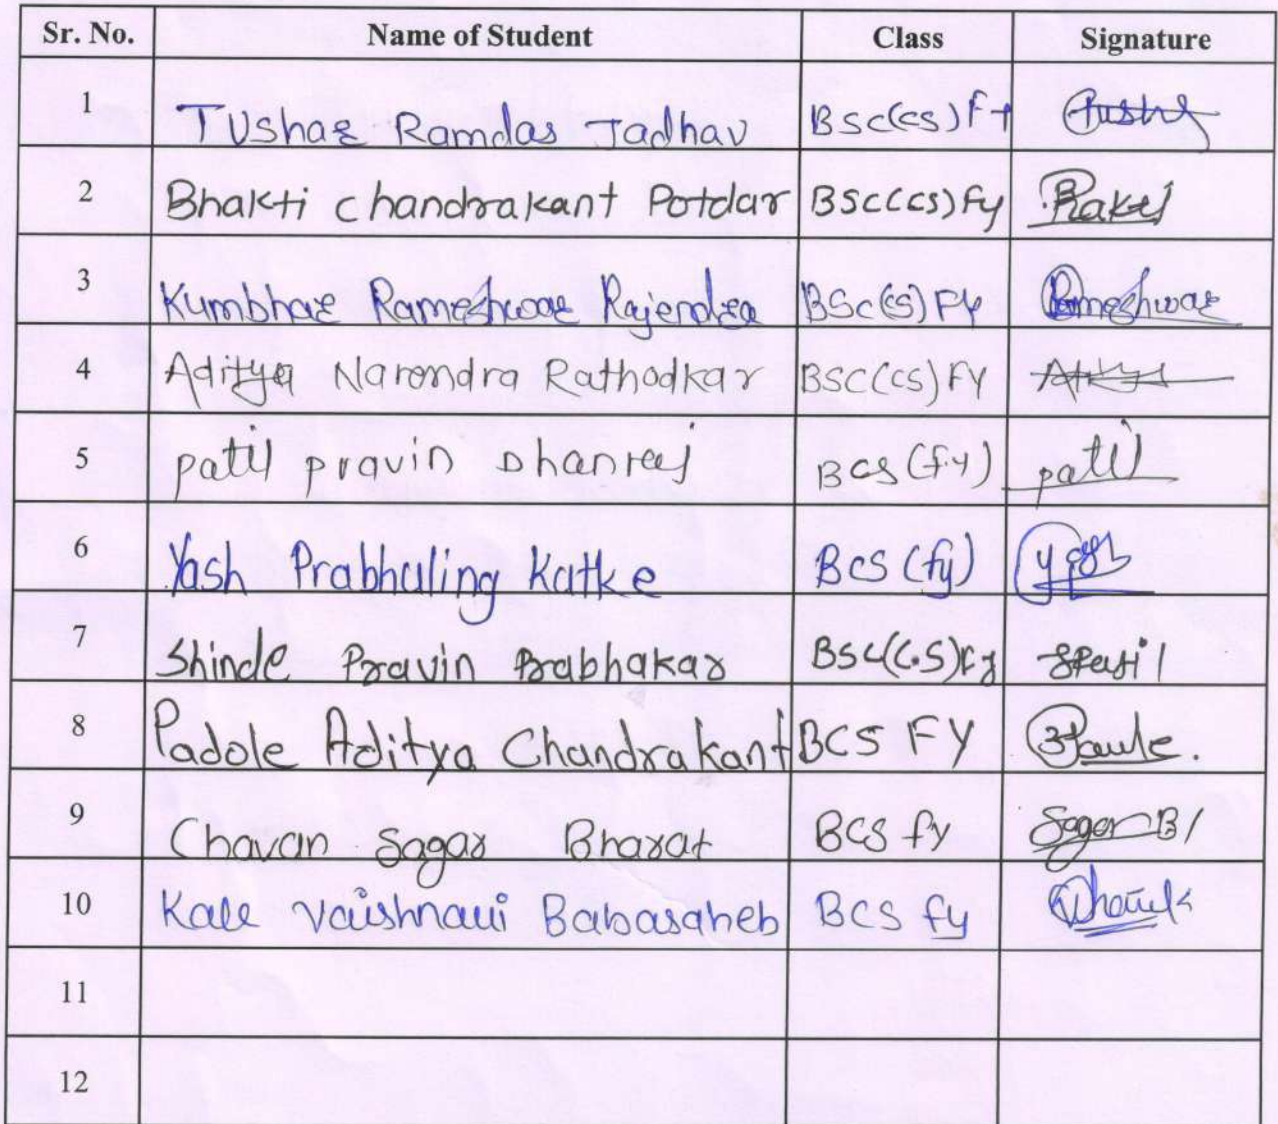 Sr. No. Name of Student Class Signature
1 Tushar Ramdas Jadhav BSc(cs) Fy
2 Bhakti chandrakant Potdar BSc(cs) Fy
3 Kumbhar Rameshwar Rajendra BSc(cs) Fy Rameshwar
4 Aditya Narendra Rathodkar BSC(CS) FY
5 patil pravin Dhanraj BCS (f.y) patil
6 Yash Prabhuling Katke BCS (fy)
7 Shinde Pravin Prabhakar BSC(C.S) Fy
8 Padole Aditya Chandrakant BCS FY
9 Chavan Sagar Bharat BCS fy Sagar B
10 Kale Vaishnavi Babasaheb BCS fy
11
12